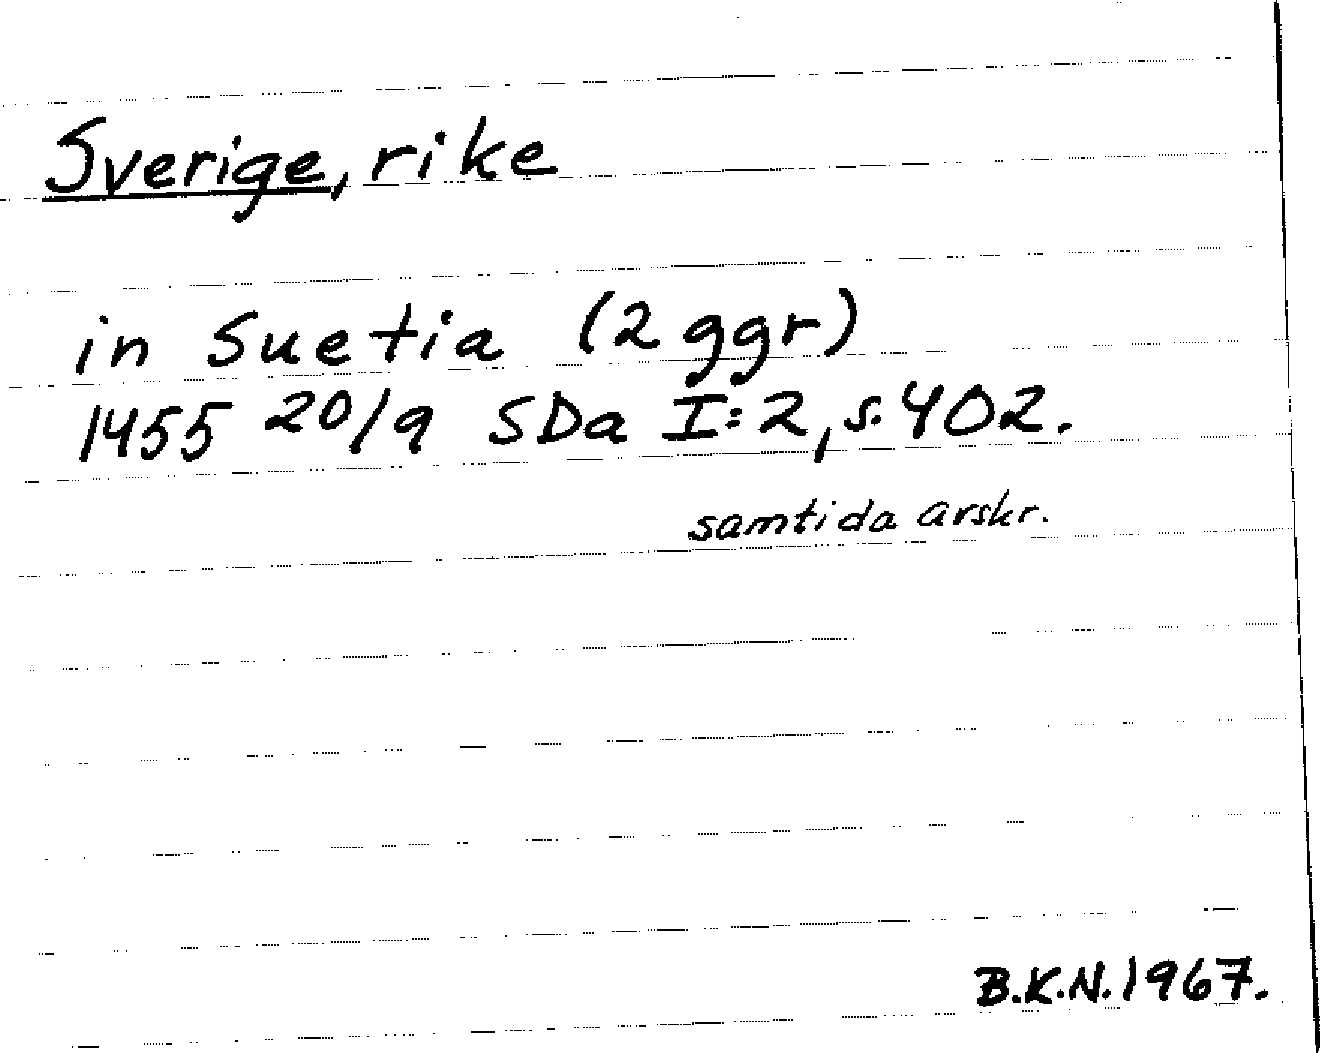 Sverige, rike
in Suetia (2 ggr)
1455 20/9 SDa I:2, s. 402.
samtida avskr.
B.K.N. 1967.